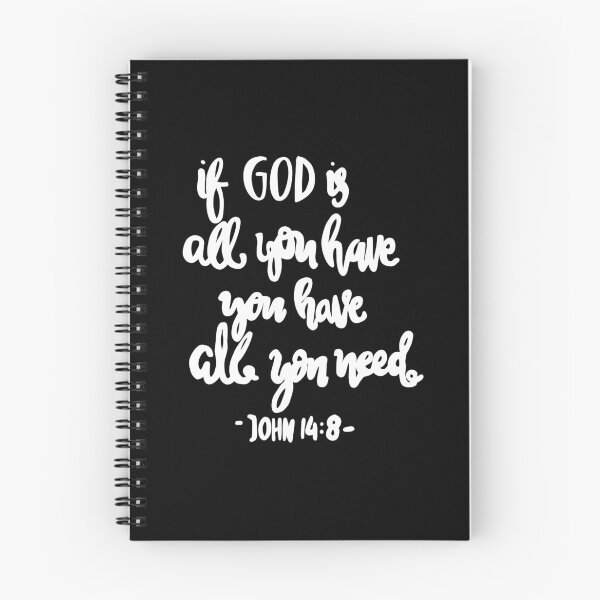 if GOD is
all you have
you have
all you need.
- JOHN 14:8 -